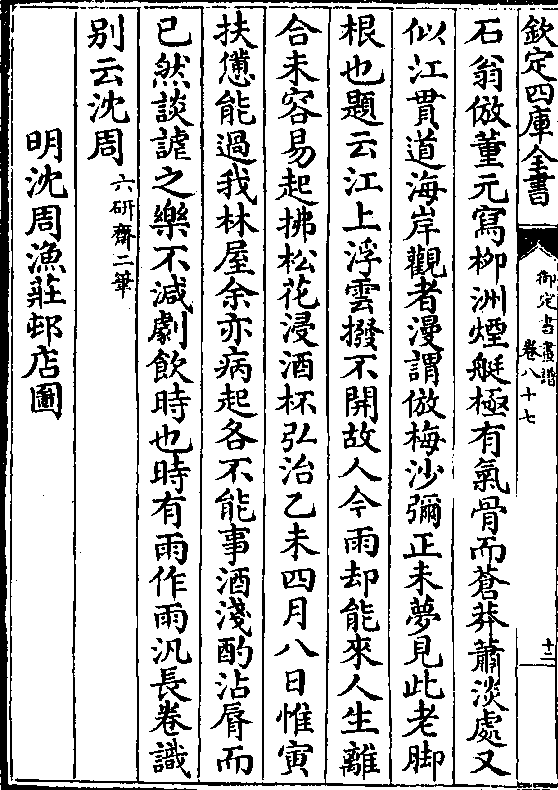 欽定四庫全書
御定書畫譜
卷八十七
十二
石翁倣董元寫栁洲煙艇極有氣骨而蒼莽蕭淡處又
似江貫道海岸觀者漫謂倣梅沙彌正未夢見此老脚
根也題云江上浮雲撥不開故人今雨却能來人生離
合未容易起拂松花浸酒杯弘治乙未四月八日惟寅
扶憊能過我林屋余亦病起各不能事酒淺酌沾脣而
已然談謔之樂不減劇飲時也時有雨作雨汎長卷識
别云沈周
六研齋二筆
明沈周漁莊邨店圖